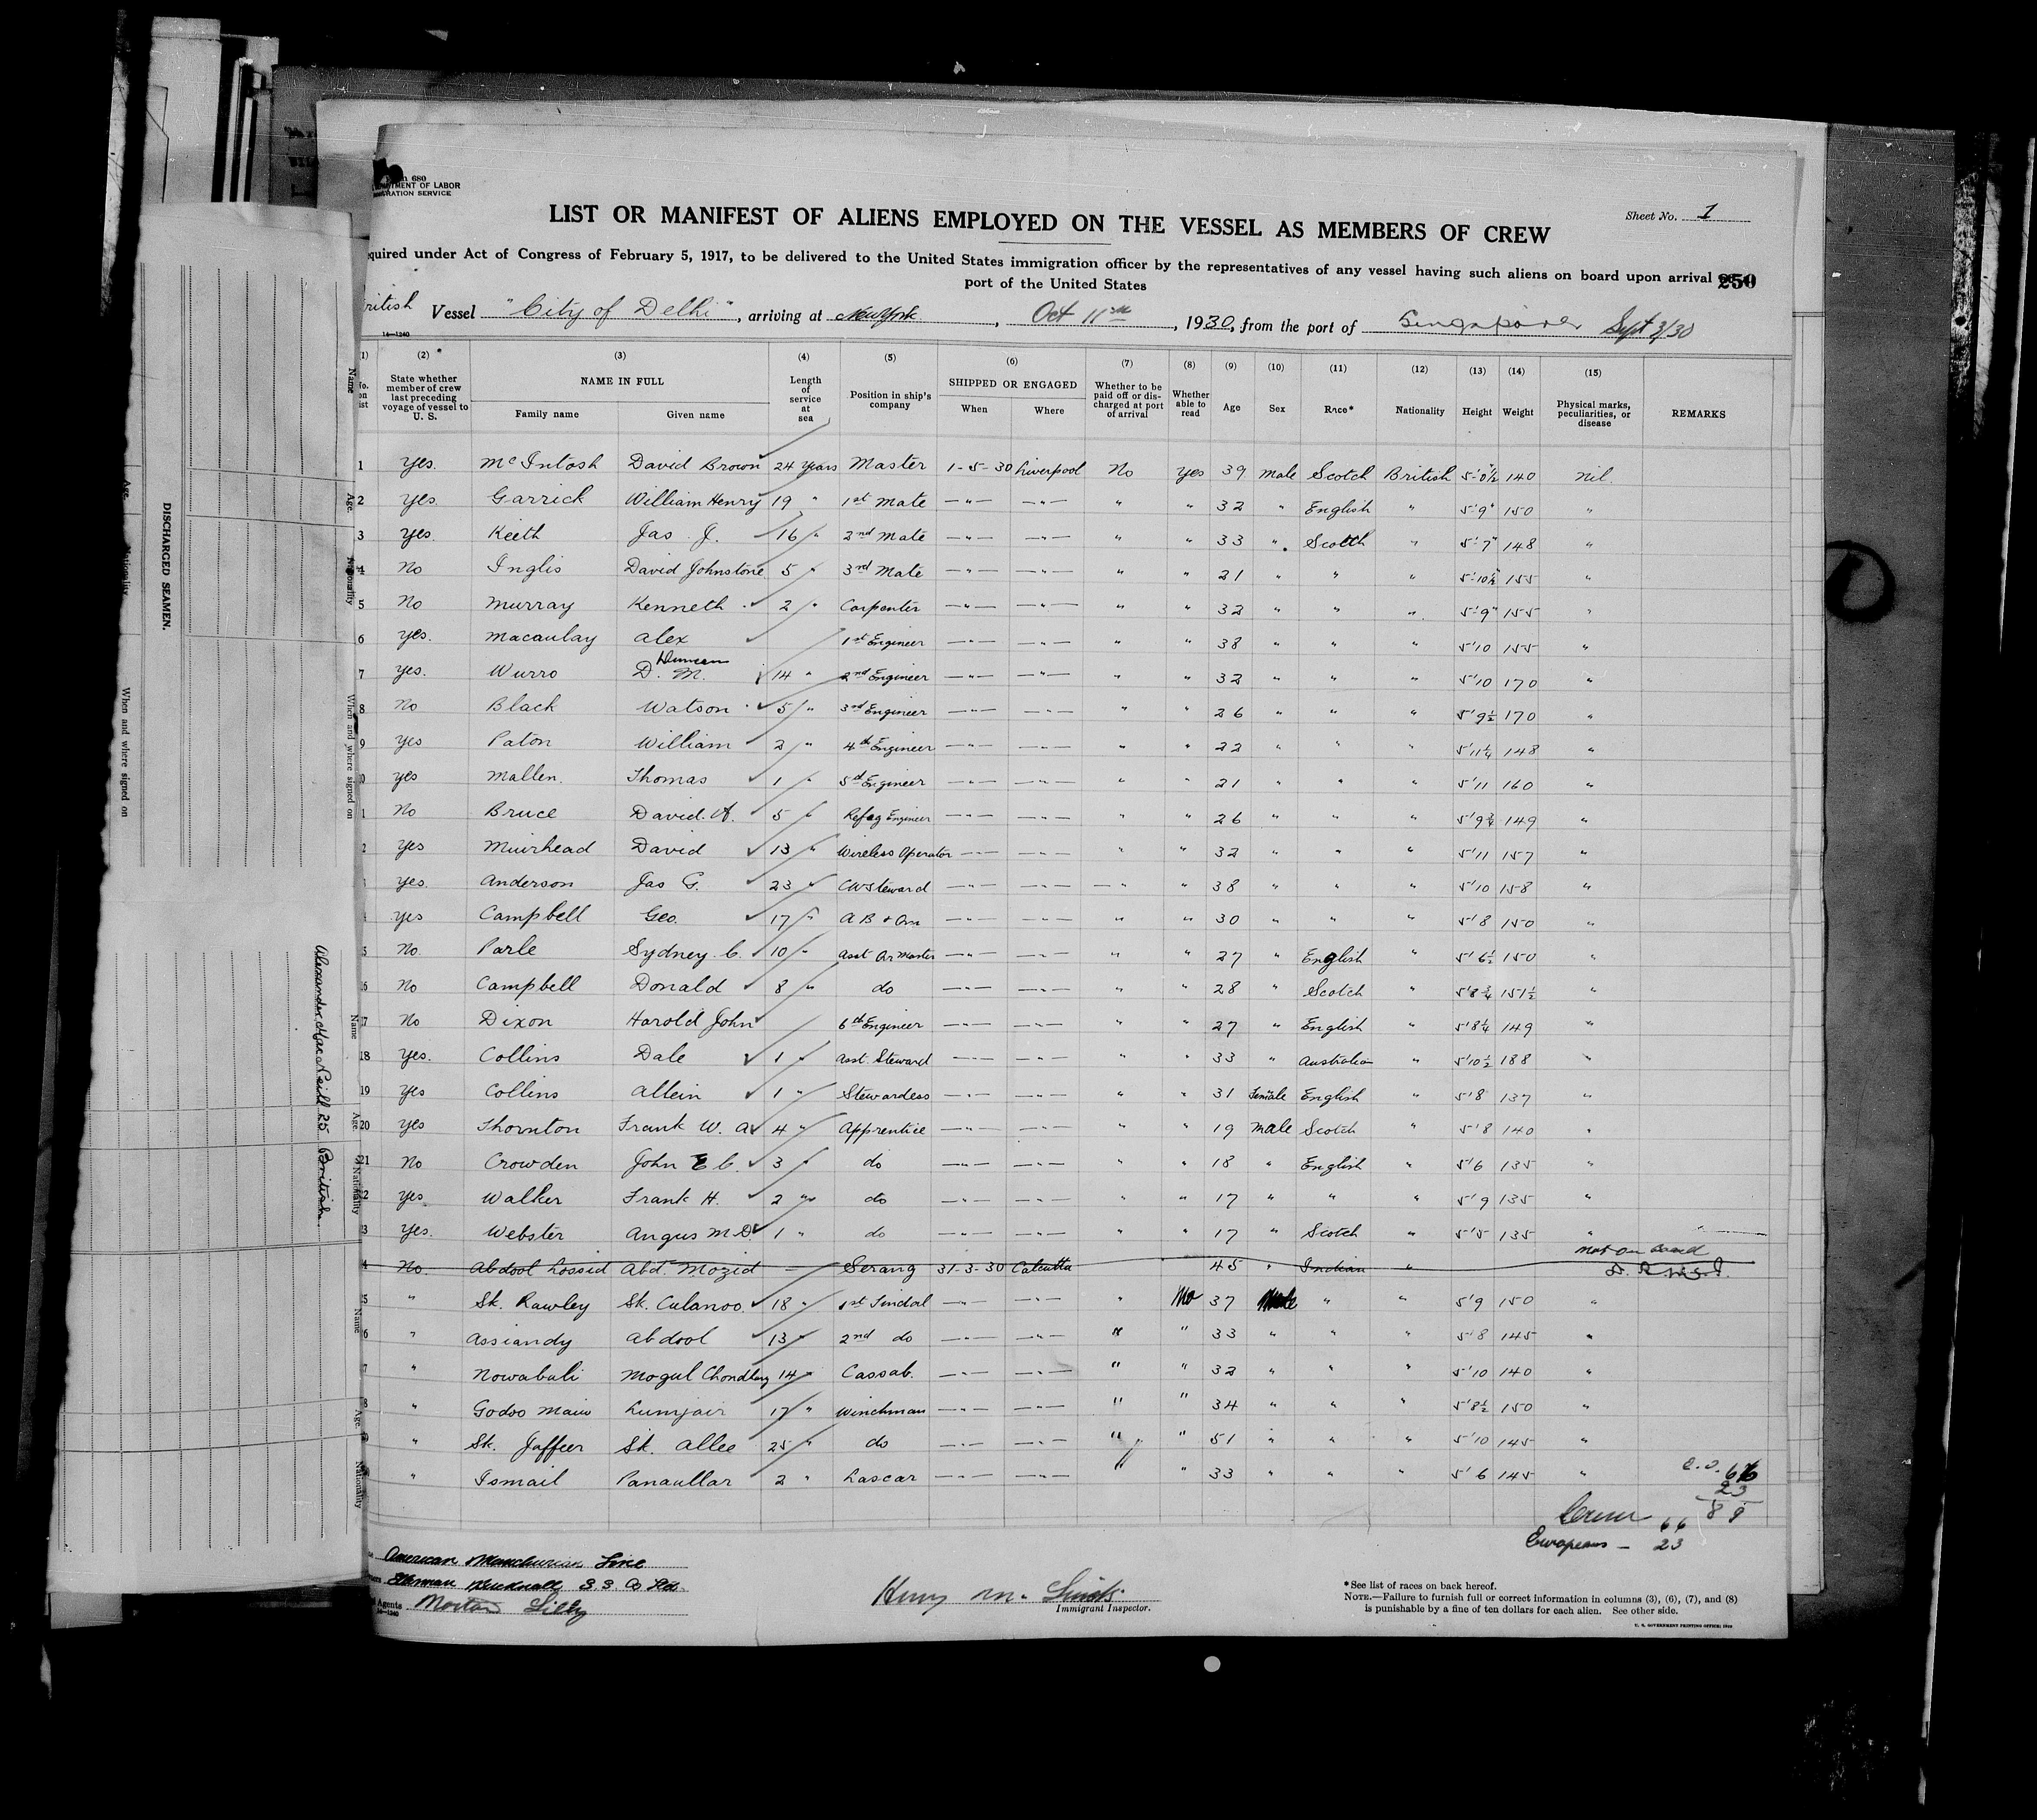 Form 680
DEPARTMENT OF LABOR
IMMIGRATION SERVICE
Sheet No. 1
LIST OR MANIFEST OF ALIENS EMPLOYED ON THE VESSEL AS MEMBERS OF CREW
equired under Act of Congress of February 5, 1917, to be delivered to the United States immigration officer by the representatives of any vessel having such aliens on board upon arrival
250
port of the United States
ritish Vessel "City of Delhi", arriving at New York, Oct 11th, 1930, from the port of Singapore Sept 3/30
14-1240
(1) (2) (3) (4) (5) (6) (7) (8) (9) (10) (11) (12) (13) (14) (15)
No. on list State whether member of crew last preceding voyage of vessel to U. S. NAME IN FULL Family name Given name Length of service at sea Position in ship's company SHIPPED OR ENGAGED When Where Whether to be paid off or discharged at port of arrival Whether able to read Age Sex Race* Nationality Height Weight Physical marks, peculiarities, or disease REMARKS
1 Yes. McIntosh David Brown 24 Years Master 1-5-30 Liverpool No Yes 39 Male Scotch British 5'-0½ 140 Nil.
2 Yes. Garrick William Henry 19 " 1st Mate —"— —"— " " 32 " English " 5'-9" 150 "
3 Yes. Keith Jas J. 16 " 2nd Mate —"— —"— " " 33 " Scotch " 5'-7" 148 "
4 No Inglis David Johnstone 5 " 3rd Mate —"— —"— " " 21 " " " 5'-10½ 155 "
5 No Murray Kenneth 2 " Carpenter —"— —"— " " 32 " " " 5'-9" 155 "
6 Yes. Macaulay Alex 1st Engineer —"— —"— " " 38 " " " 5'10 155 "
Duncan
7 Yes. Wurro D. M. 14 " 2nd Engineer —"— —"— " " 32 " " " 5'10 170 "
8 No Black Watson 5 " 3rd Engineer —"— —"— " " 26 " " " 5'9½ 170 "
9 Yes Paton William 2 " 4th Engineer —"— —"— " " 22 " " " 5'11¼ 148 "
0 Yes Mallen. Thomas 1 " 5th Engineer —"— —"— " " 21 " " " 5'11 160 "
1 No Bruce David. A. 5 " Refrg Engineer —"— —"— " " 26 " " " 5'9¾ 149 "
2 Yes Muirhead David 13 " Wireless Operator —"— —"— " " 32 " " " 5'11 157 "
Yes. Anderson Jas G. 23 " Ch Steward —"— —"— " " 38 " " " 5'10 158 "
Yes Campbell Geo. 17 " A B + Qm —"— —"— " " 30 " " " 5'8 150 "
5 No. Parle Sydney. C. 10 " Asst Qr Master —"— —"— " " 27 " English " 5'6½ 150 "
6 No Campbell Donald 8 " do —"— —"— " " 28 " Scotch " 5'8¾ 151½ "
17 No Dixon Harold John 6th Engineer —"— —"— " " 27 " English " 5'8¼ 149 "
18 Yes. Collins Dale 1 " Asst. Steward —"— —"— " " 33 " Australian " 5'10½ 188 "
19 Yes Collins Allein 1 " Stewardess —"— —"— " " 31 Female English " 5'8 137 "
20 Yes Thornton Frank W. A 4 " Apprentice —"— —"— " " 19 Male Scotch " 5'8 140 "
21 No Crowden John E C. 3 " do —"— —"— " " 18 " English " 5'6 135 "
22 Yes Walker Frank H. 2 " do —"— —"— " " 17 " " " 5'9 135 "
3 Yes. Webster Angus M.D. 1 " do —"— —"— " " 17 " Scotch " 5'5 135 "
Not on board
4 No. Abdool Lossid Abd. Mozid — Serang 31-3-30 Calcutta 45 " Indian "
25 " Sk. Rawley Sk. Culanoo. 18 " 1st Tindal —"— —"— " No 37 Male " " 5'9 150 "
6 " Assiandy Abdool 13 " 2nd do —"— —"— " " 33 " " " 5'8 145 "
7 " Nowabali Mogul Chondhry 14 " Cassab. —"— —"— " " 32 " " " 5'10 140 "
8 " Godoo Maiw Lumjair 17 " Winchman —"— —"— " " 34 " " " 5'8½ 150 "
" Sk. Jaffeer Sk. Allee 25 " do —"— —"— " " 51 " " " 5'10 145 "
" Ismail Panaullar 2 " Lascar —"— —"— " " 33 " " " 5'6 145 "
66
23
89
Crew 66
Europeans — 23
American Manchurian Line
Ellerman Bucknall S. S. Co Ltd.
Agents Norton Lilly
14-1240
Henry M.
Immigrant Inspector.
*See list of races on back hereof.
NOTE.—Failure to furnish full or correct information in columns (3), (6), (7), and (8)
is punishable by a fine of ten dollars for each alien. See other side.
U. S. GOVERNMENT PRINTING OFFICE:
DISCHARGED SEAMEN.
Name Age. Nationality When and where signed on
Alexander MacNeill 25 British.
Name Age. Nationality
Name Age. Nationality
Age. Nationality When and where signed on